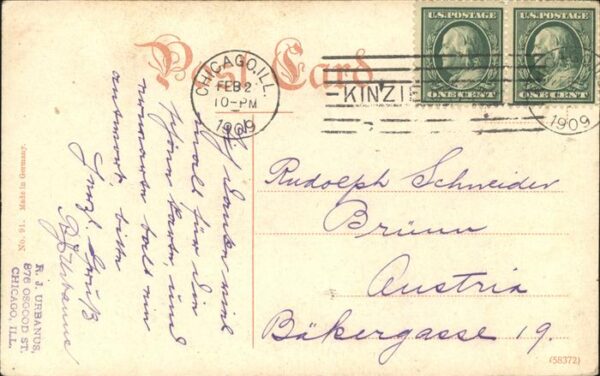 Post Card
CHICAGO, ILL.
FEB 2
10-PM
1909
KINZIE
U.S. POSTAGE
ONE CENT
U.S. POSTAGE
ONE CENT
1909
Ich danke viel
mals für die
schöne Karte, und
erwarte bald eine
antwort, bitte
Herzl. Gruß
R. J. Urbanus
Rudolph Schneider
Brünn
Austria
Bäkergasse 19.
No. 91. Made in Germany.
R. J. URBANUS,
876 OSGOOD ST.
CHICAGO, ILL.
(58372)